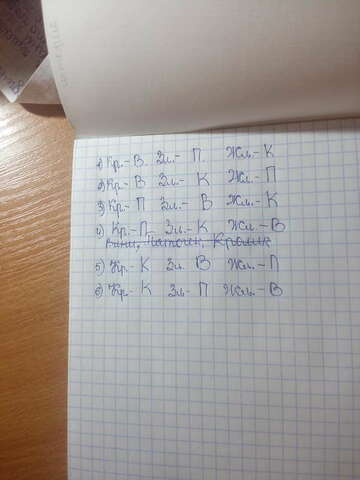 1) Кр.- В. Зл.- П. Жл.- К
2) Кр.- В Зл.- К Жл.- П
3) Кр.- П Зл.- В Жл.- К
4) Кр.- П- Зл.- К Жл.- В
Винни, Пятачок, Кролик
5) Кр.- К Зл. В Жл.- П
6) Кр.- К Зл- П Жл.- В